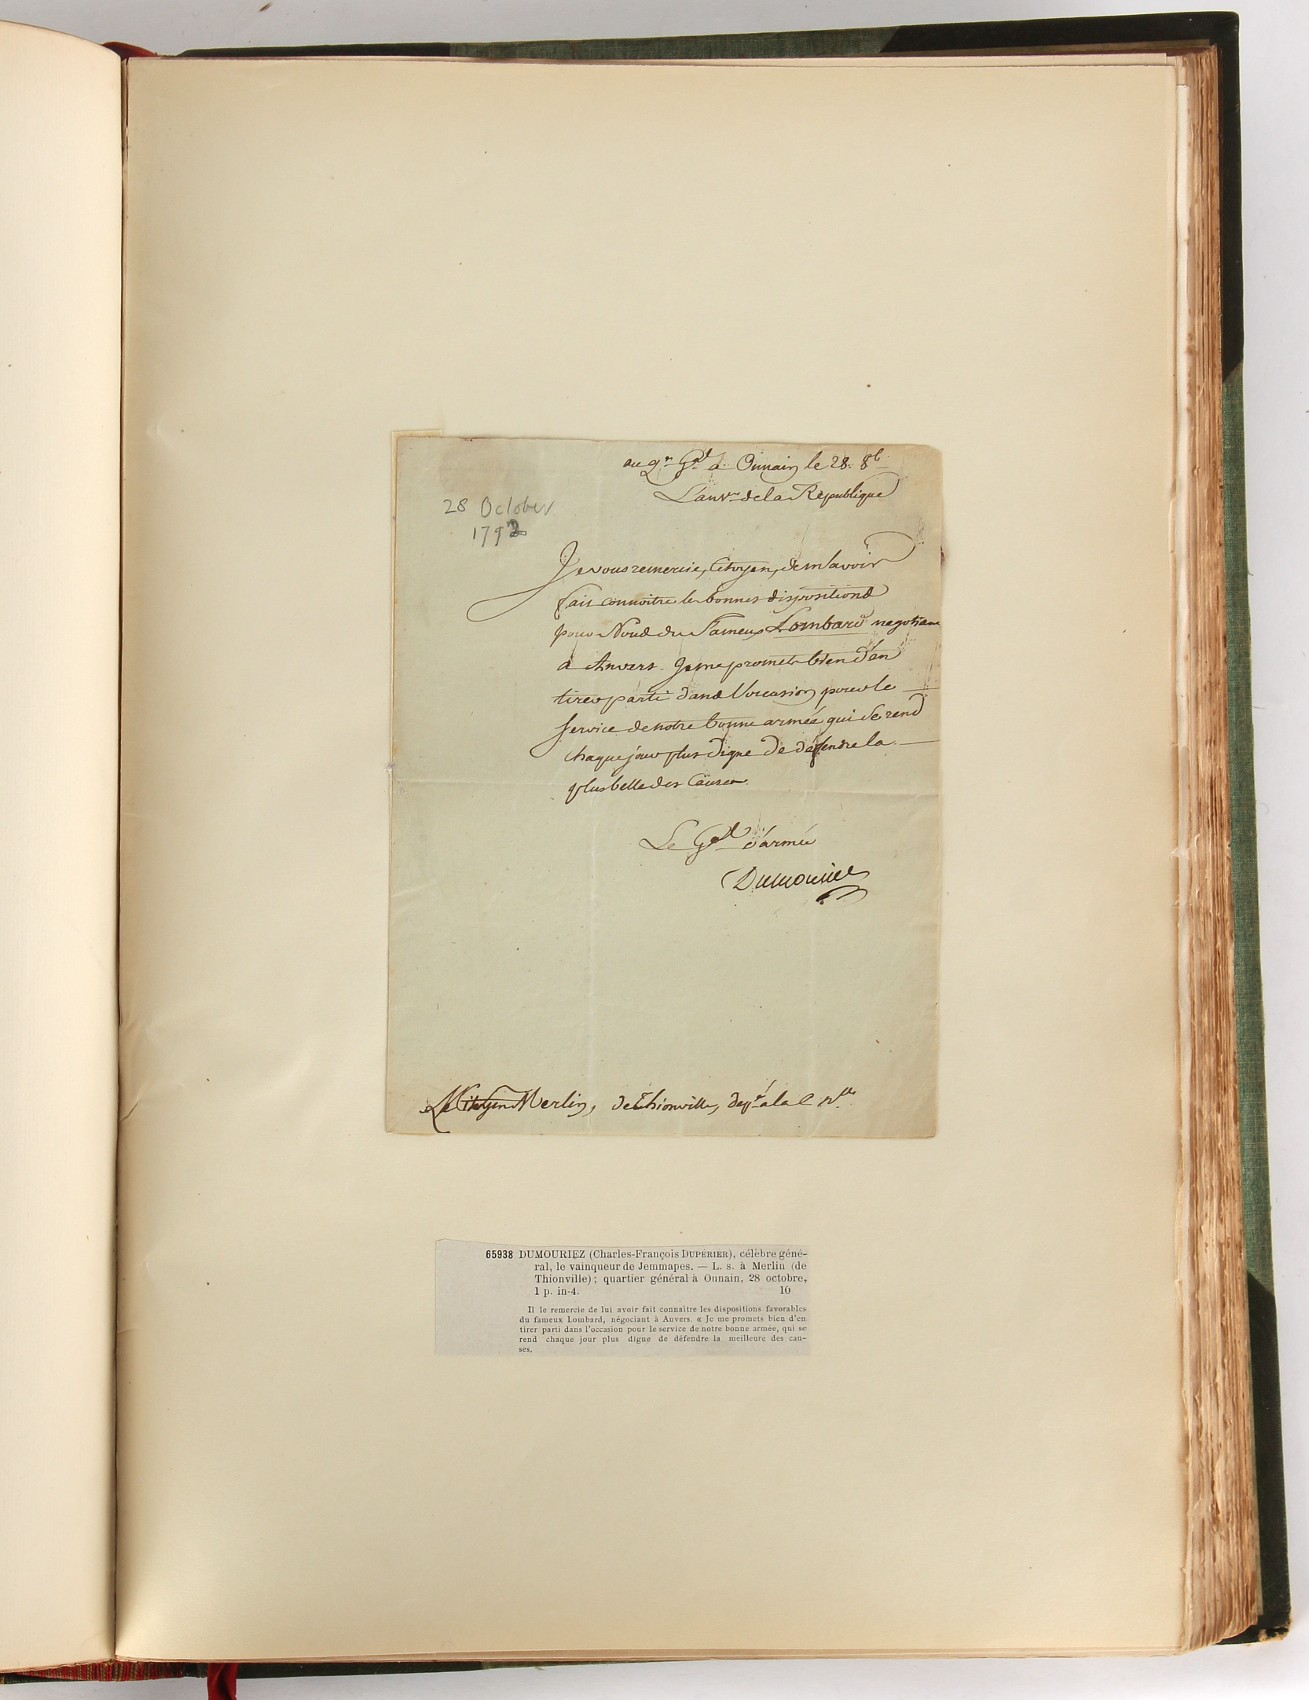 au qr. Gal. à Onnain le 28. 8b
L'an 1er de la République
28 October
1792
Je vous remercie, Citoyen, de m'avoir
fait connoitre les bonnes dispositions
pour Nous du fameux Lombard negotiant
à Anvers. Je me promets bien d'en
tirer parti dans l'occasion pour le
service de notre bonne armée qui se rend
chaque jour plus digne de defendre la
plus belle des Causes.
Le Gal. d'armée
Dumouriez
Le Citoyen Merlin, de Thionville, dep. à la C Nlle
65938 DUMOURIEZ (Charles-François DUPÉRIER), célèbre géné-
ral, le vainqueur de Jemmapes. — L. s. à Merlin (de
Thionville) ; quartier général à Onnain, 28 octobre,
1 p. in-4. 10
Il le remercie de lui avoir fait connaître les dispositions favorables
du fameux Lombard, négociant à Anvers. « Je me promets bien d'en
tirer parti dans l'occasion pour le service de notre bonne armée, qui se
rend chaque jour plus digne de défendre la meilleure des cau-
ses.